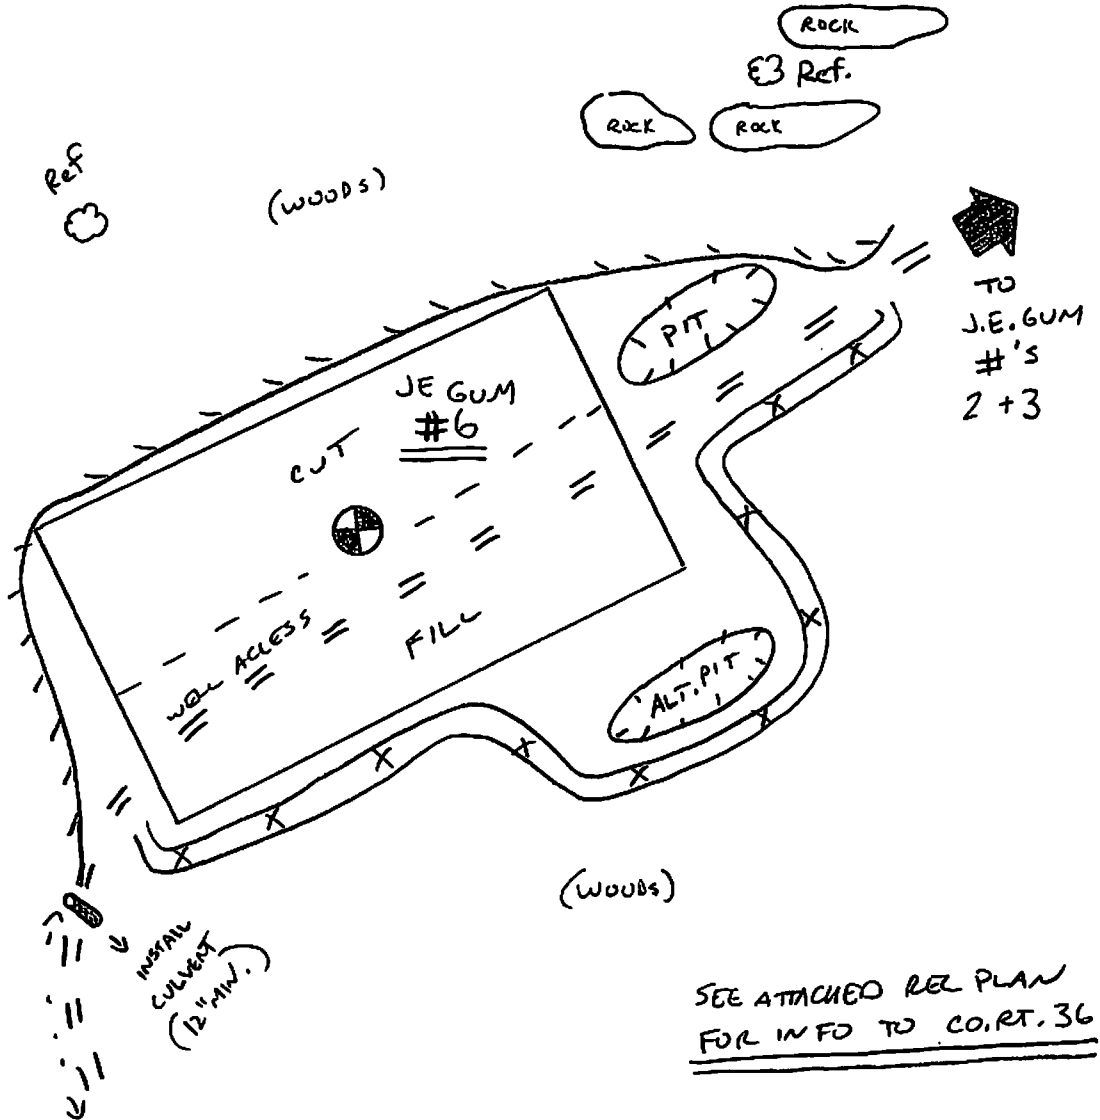 ROCK
Ref.
ROCK
ROCK
Ref
(WOODS)
TO
J.E. GUM
#'S
2 + 3
PIT
JE GUM
#6
CUT
WELL ACCESS
FILL
ALT. PIT
(WOODS)
INSTALL
CULVERT
(12" MIN.)
SEE ATTACHED REC PLAN
FOR INFO TO CO. RT. 36